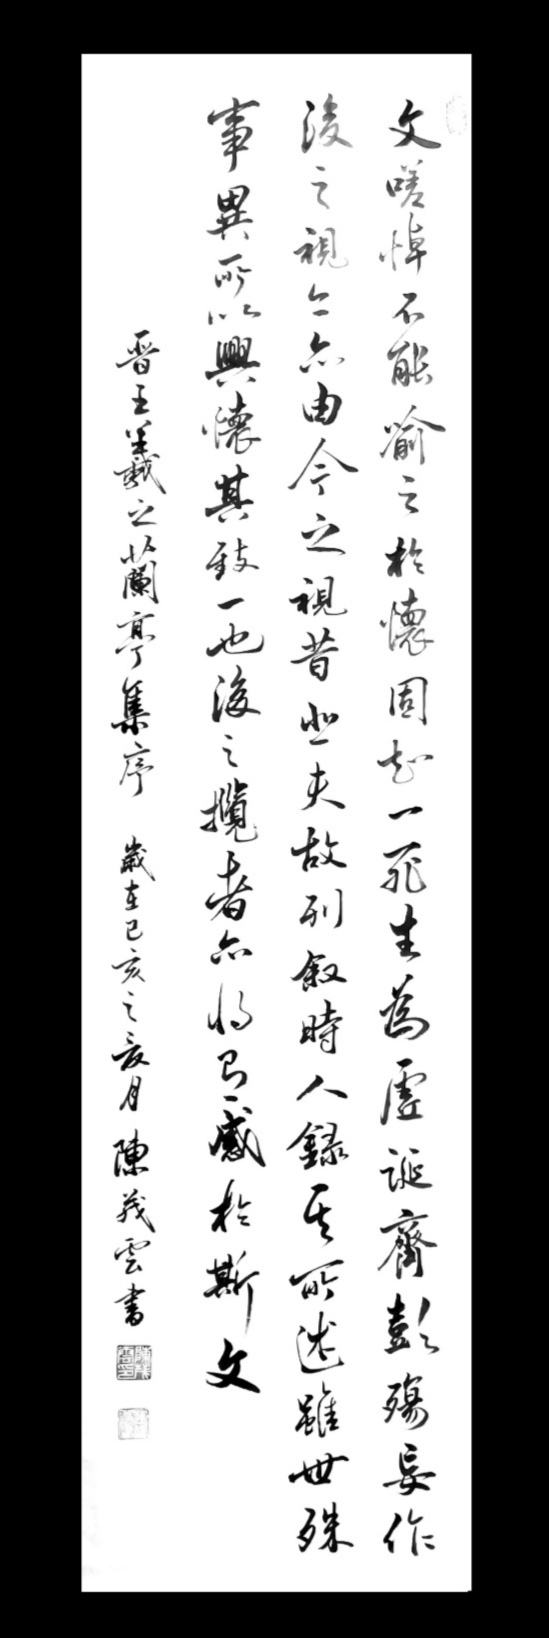 文嗟悼不能喻之於懷固知一死生為虛誕齊彭殤妄作
後之視今亦由今之視昔悲夫故列叙時人錄其所述雖世殊
事異所以興懷其致一也後之攬者亦將有感於斯文
晉王羲之蘭亭集序 歲在己亥之夏月 陳茂雲書